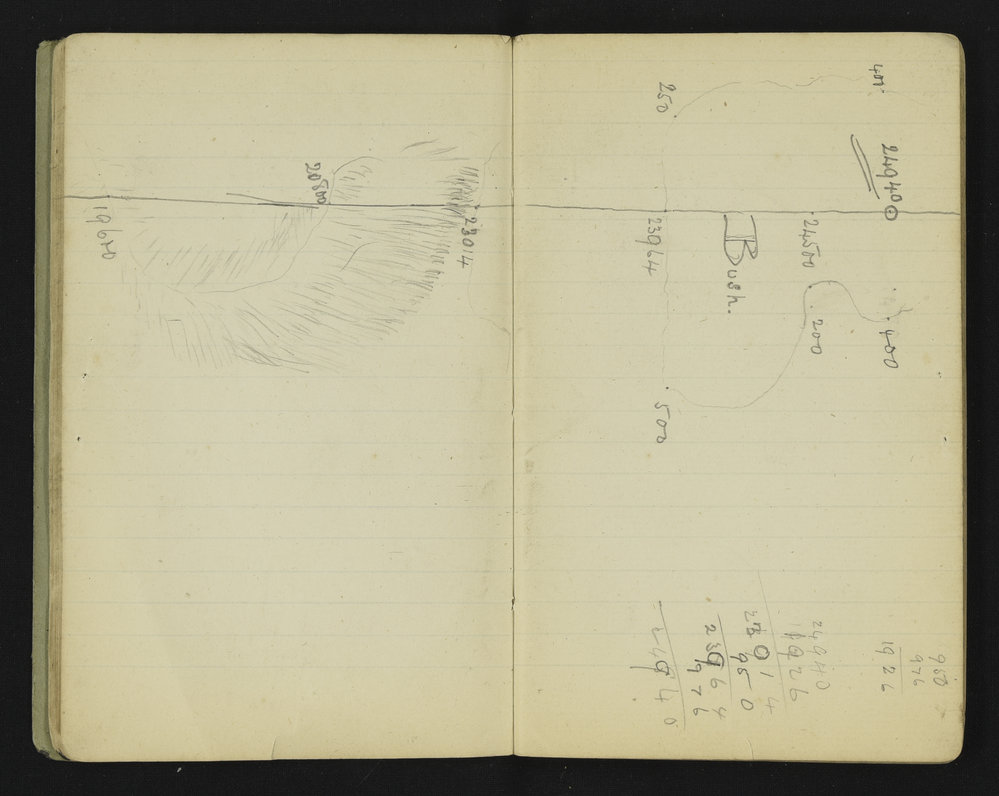 950
976
400 24940 400 1926
24940
24500 200 1926
23014
Bush. 950
23964
976
250 23964 500 24940
23014
20800
19600